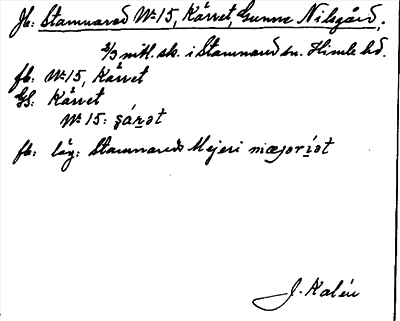 Jb: Stamnared No 15, Kärret, Gunne Nilsgård,
2/3 mtl. sk. i Stamnared sn. Himle hd.
fb: No 15, Kärret
GS: Kärret
No 15: şárət
fb: läg: Stamnareds Mejeri mæjəríət
J. Kalén